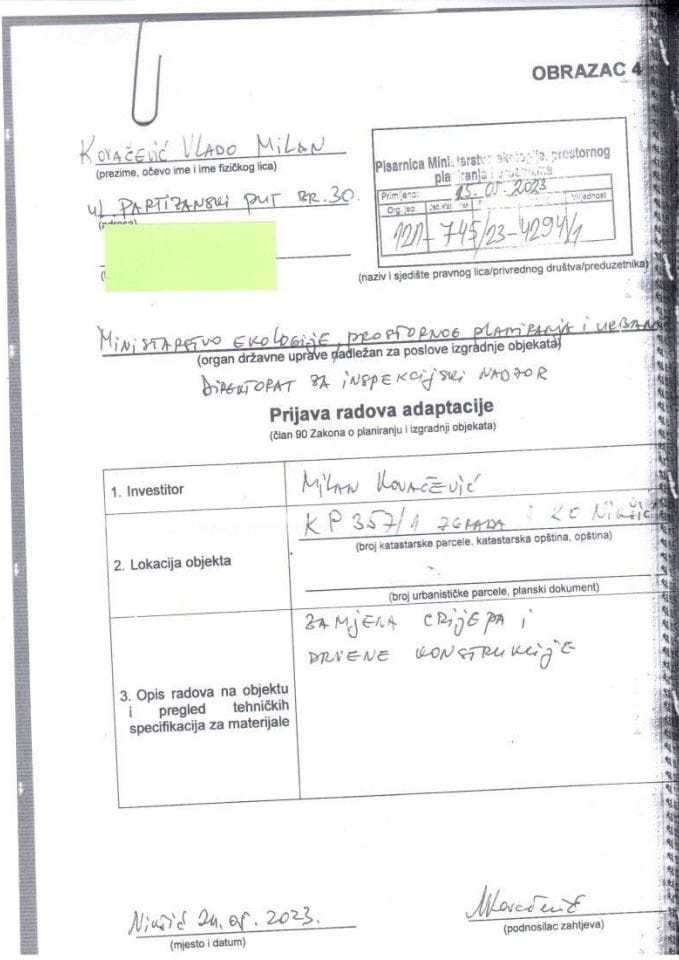 OBRAZAC 4
KOVAČEVIĆ VLADO MILAN
(prezime, očevo ime i ime fizičkog lica)
Ul. PARTIZANSKI PUT BR.30.
Pisarnica Ministarstvo ekologije, prostornog
planiranja i urbanizma
Primljeno: 15.05.2023
Org. jed. Vrijednost
121-745/23-4294/1
(naziv i sjedište pravnog lica/privrednog društva/preduzetnika)
MINISTARSTVO EKOLOGIJE, PROSTORNOG PLANIRANJA I URBANI
(organ državne uprave nadležan za poslove izgradnje objekata)
DIREKTORAT ZA INSPEKCIJSKI NADZOR
Prijava radova adaptacije
(član 90 Zakona o planiranju i izgradnji objekata)
1. Investitor
MILAN KOVAČEVIĆ
2. Lokacija objekta
KP 357/1 ZGRADA 1 KO NIKŠIĆ
(broj katastarske parcele, katastarska opština, opština)
(broj urbanističke parcele, planski dokument)
3. Opis radova na objektu
i pregled tehničkih
specifikacija za materijale
ZAMJENA CRIJEPA I
DRVENE KONSTRUKCIJE
Nikšić 2023.
(mjesto i datum)
(podnosilac zahtjeva)